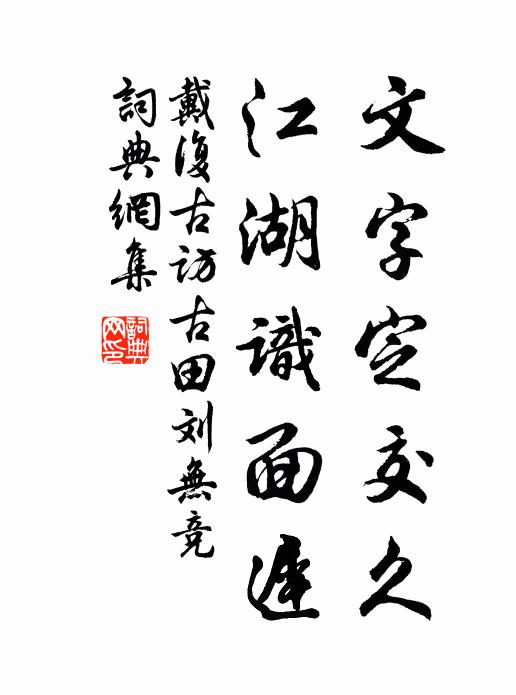 文字定交久
江湖識面遲
戴復古訪古田刘無竞
詞典網集
詞典网印